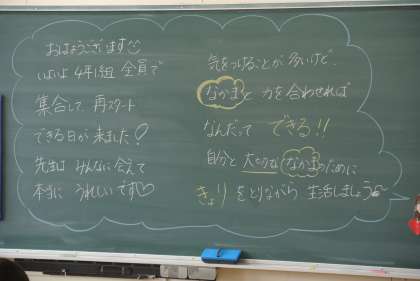 おはようございます
いよいよ4年1組 全員で
集合して、再スタート
できる日が来ました!
先生は みんなに会えて
本当に うれしいです♡
気をつけることが多いけど、
なかまと力を合わせれば
なんだって できる!!
自分と大切な なかまのために
きょりをとりながら 生活しましょう